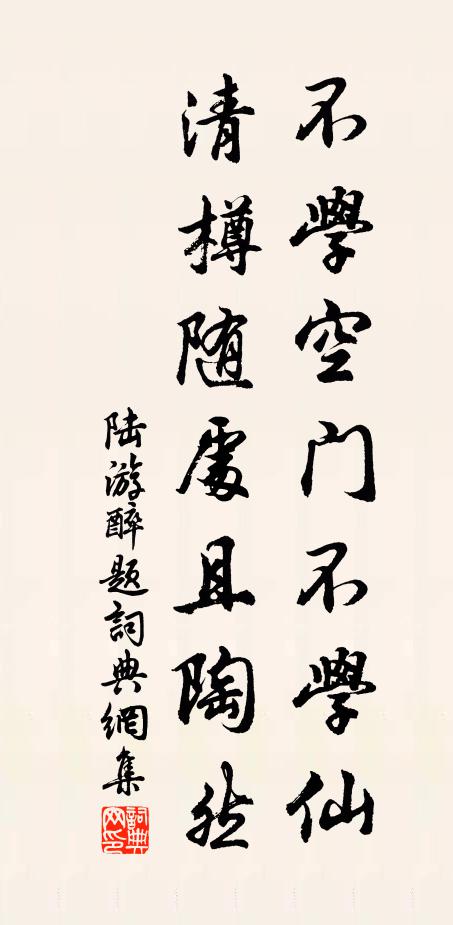 不學空門不學仙
清樽随處且陶然
陆游醉题詞典網集
詞典
网印